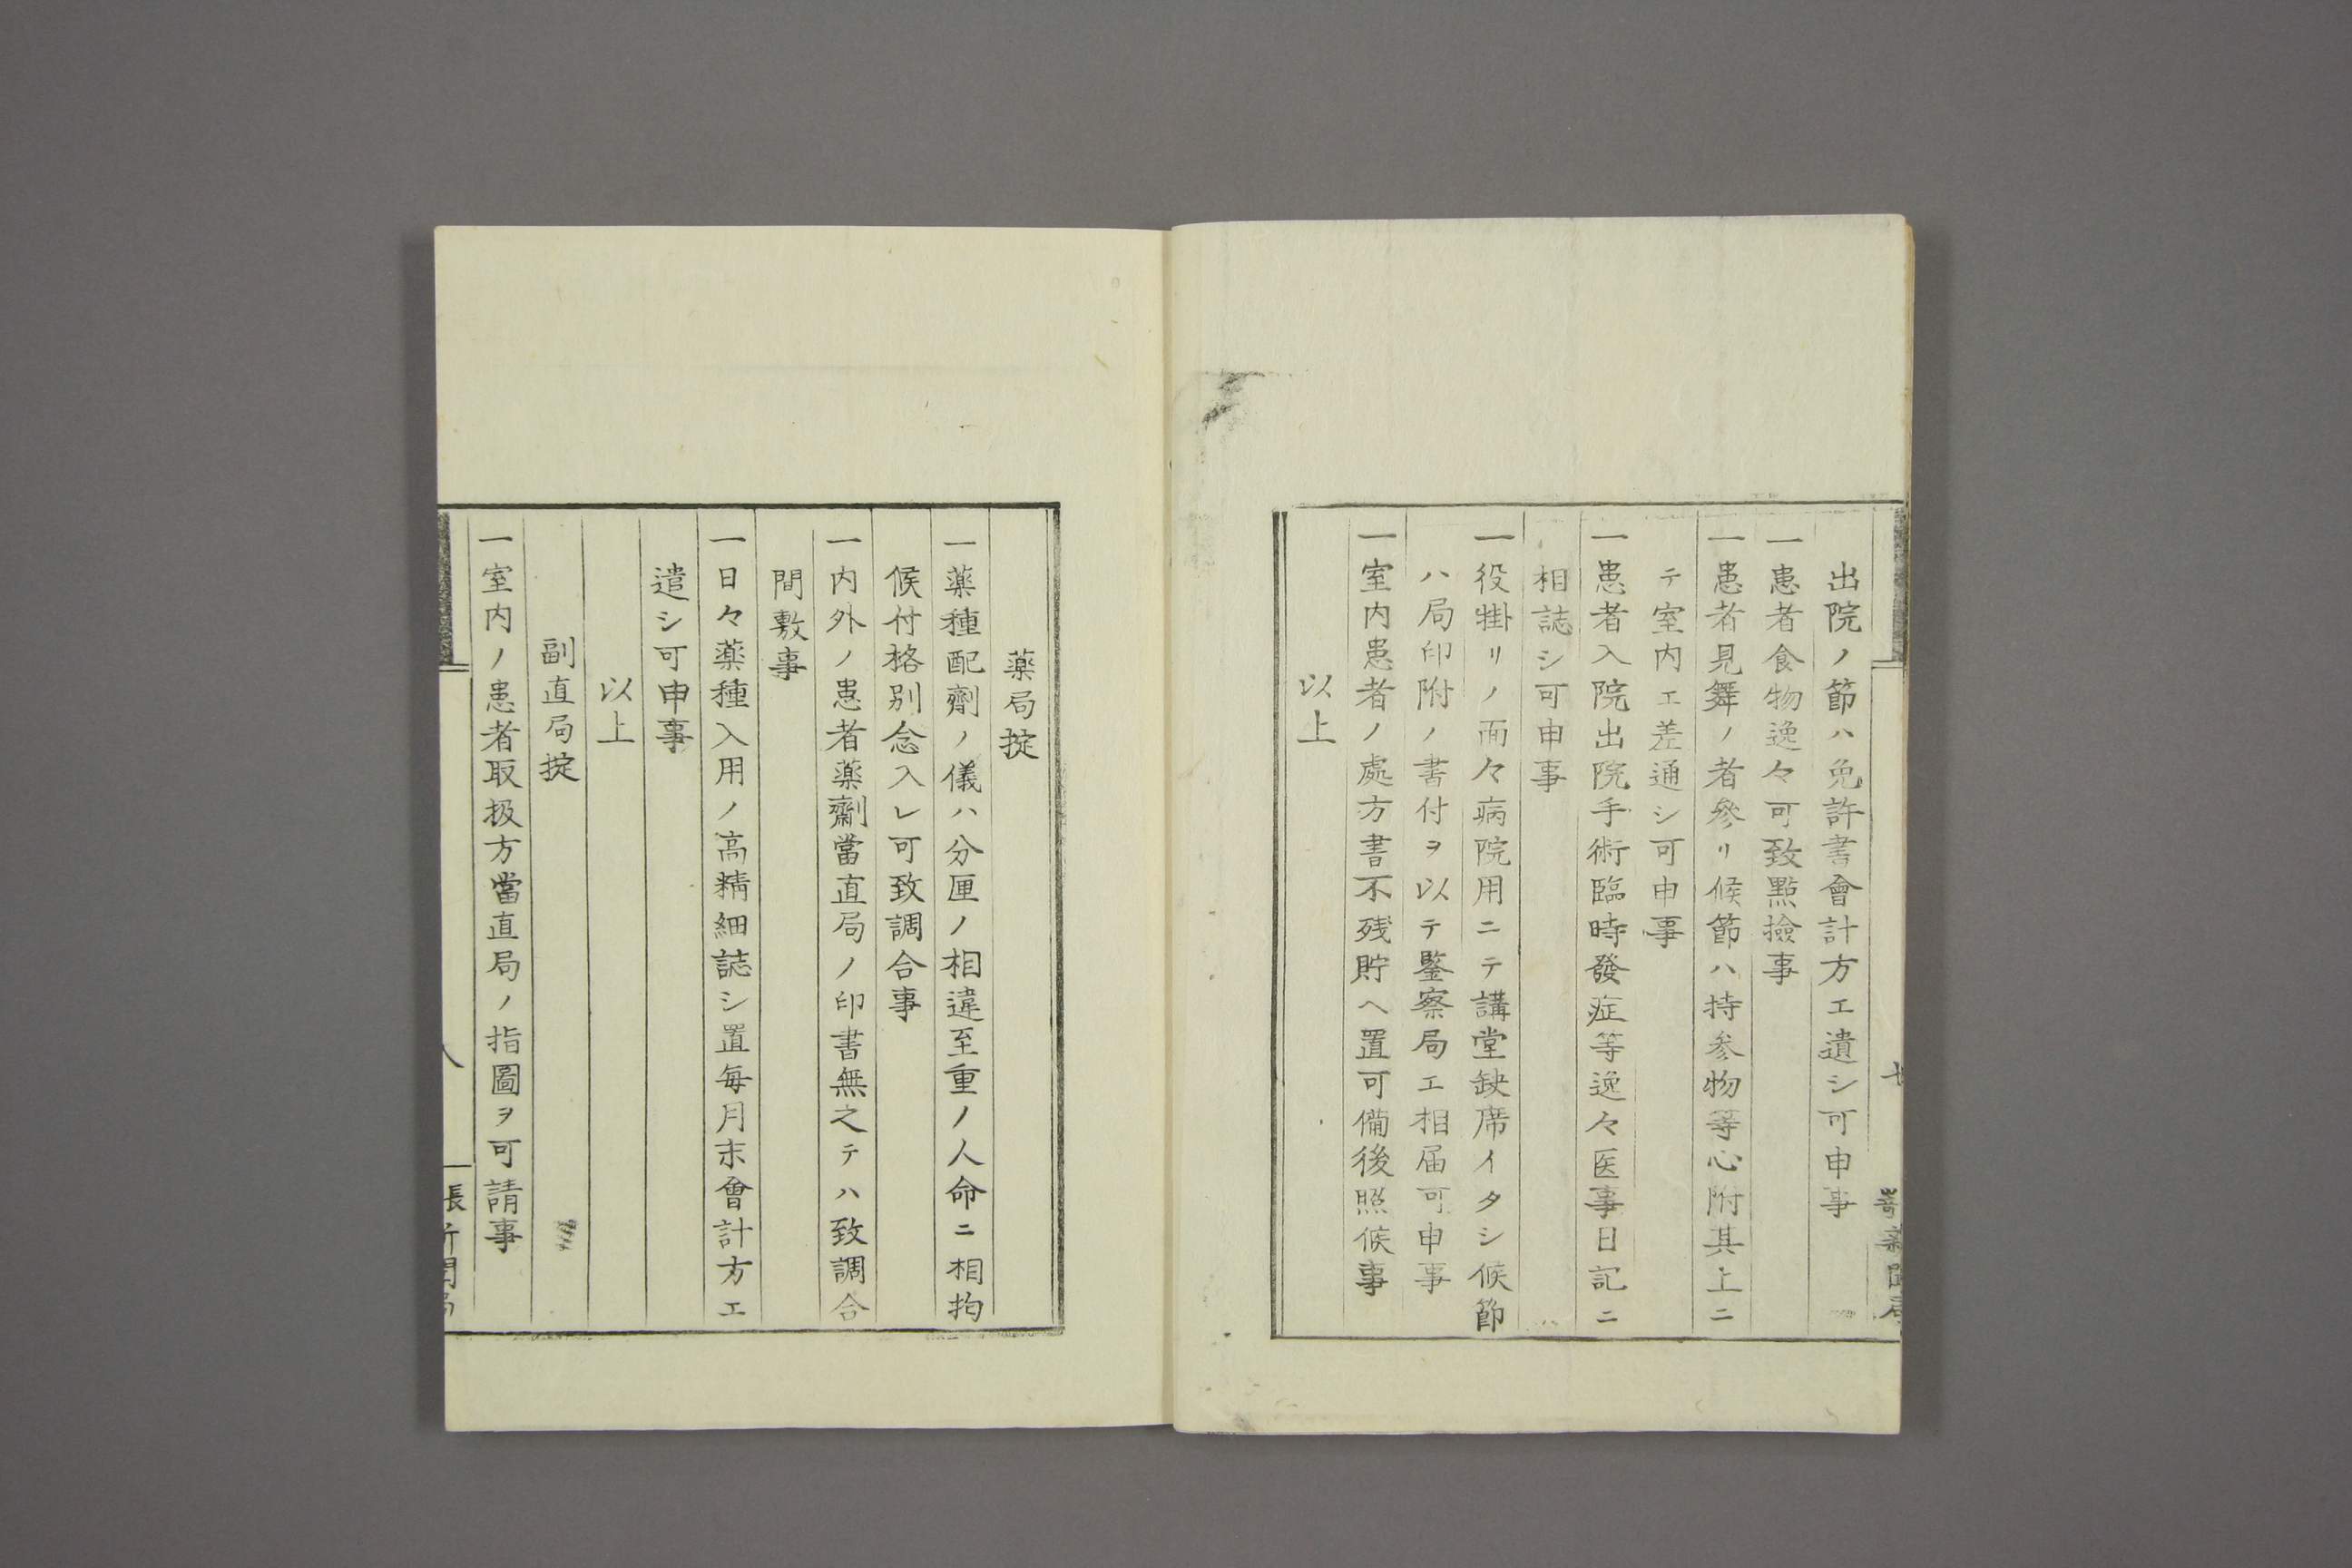 出院ノ節ハ免許書會計方エ遺シ可申事
一患者食物逸々可致㸃撿事
一患者見舞ノ者參リ候節ハ持参物等心附其上ニ
テ室内エ差通シ可申事
一患者入院出院手術臨時發症等逸々医事日記ニ
相誌シ可申事
一役掛リノ面々病院用ニテ講堂缺席イタシ候節
ハ局印附ノ書付ヲ以テ鑒察局エ相届可申事
一室内患者ノ處方書不残貯ヘ置可備後照候事
以上
薬局掟
一薬種配劑ノ儀ハ分厘ノ相違至重ノ人命ニ相拘
候付格別念入レ可致調合事
一内外ノ患者薬劑當直局ノ印書無之テハ致調合
間敷事
一日々薬種入用ノ高精細誌シ置毎月末會計方エ
遣シ可申事
以上
副直局掟
一室内ノ患者取扱方當直局ノ指圖ヲ可請事
八